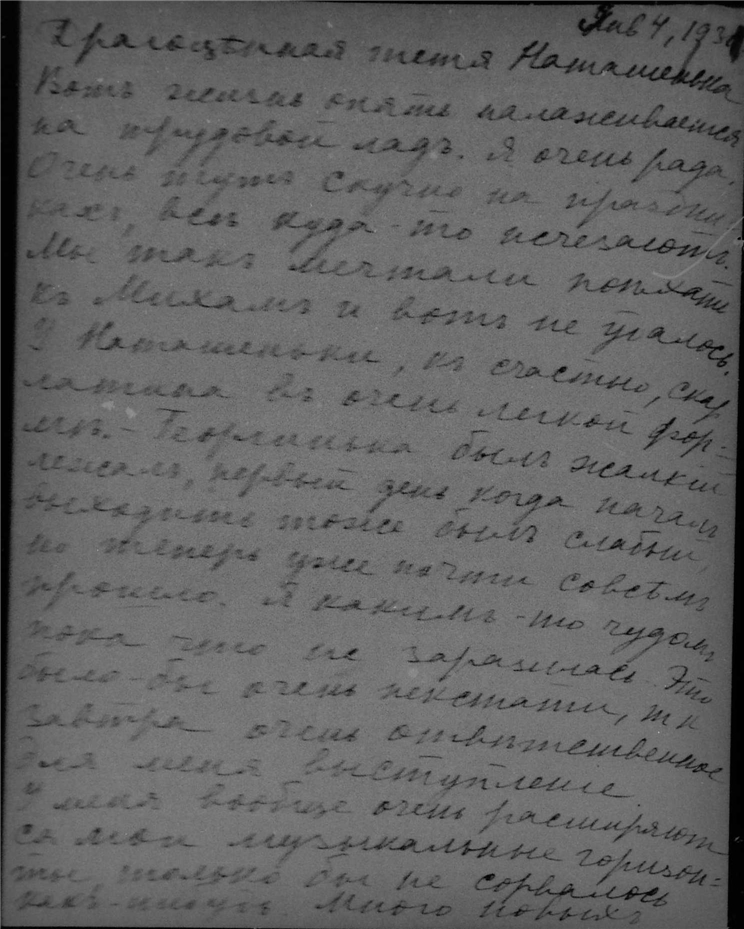 Янв 4, 193
Драгоцѣнная тетя Наташенька
Вотъ жизнь опять налаживается
на трудовой ладъ. Я очень рада.
Очень тутъ скучно на праздни-
кахъ, всѣ куда-то исчезаютъ.
Мы такъ мечтали поѣхать
къ Михамъ и вотъ не удалось.
У Наташеньки, къ счастью, скар-
латина въ очень легкой фор-
мѣ. - Георгинька былъ жалкій
лежалъ, первый день когда началъ
выходить тоже былъ слабый,
но теперь уже почти совсѣмъ
прошло. Я какимъ-то чудомъ
пока что не заразилась. Это
было-бы очень некстати, т к
завтра очень отвѣтственное
для меня выступленіе
У меня вообще очень расширяют
ся мои музыкальные горизон-
ты, только бы не сорвалось
какъ-нибудь. Много новыхъ